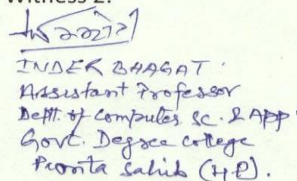 Witness 2:
INDER BHAGAT
Assistant Professor
Deptt. of Computer Sc. & App.
Govt. Degree College
Paonta Sahib (H.P).